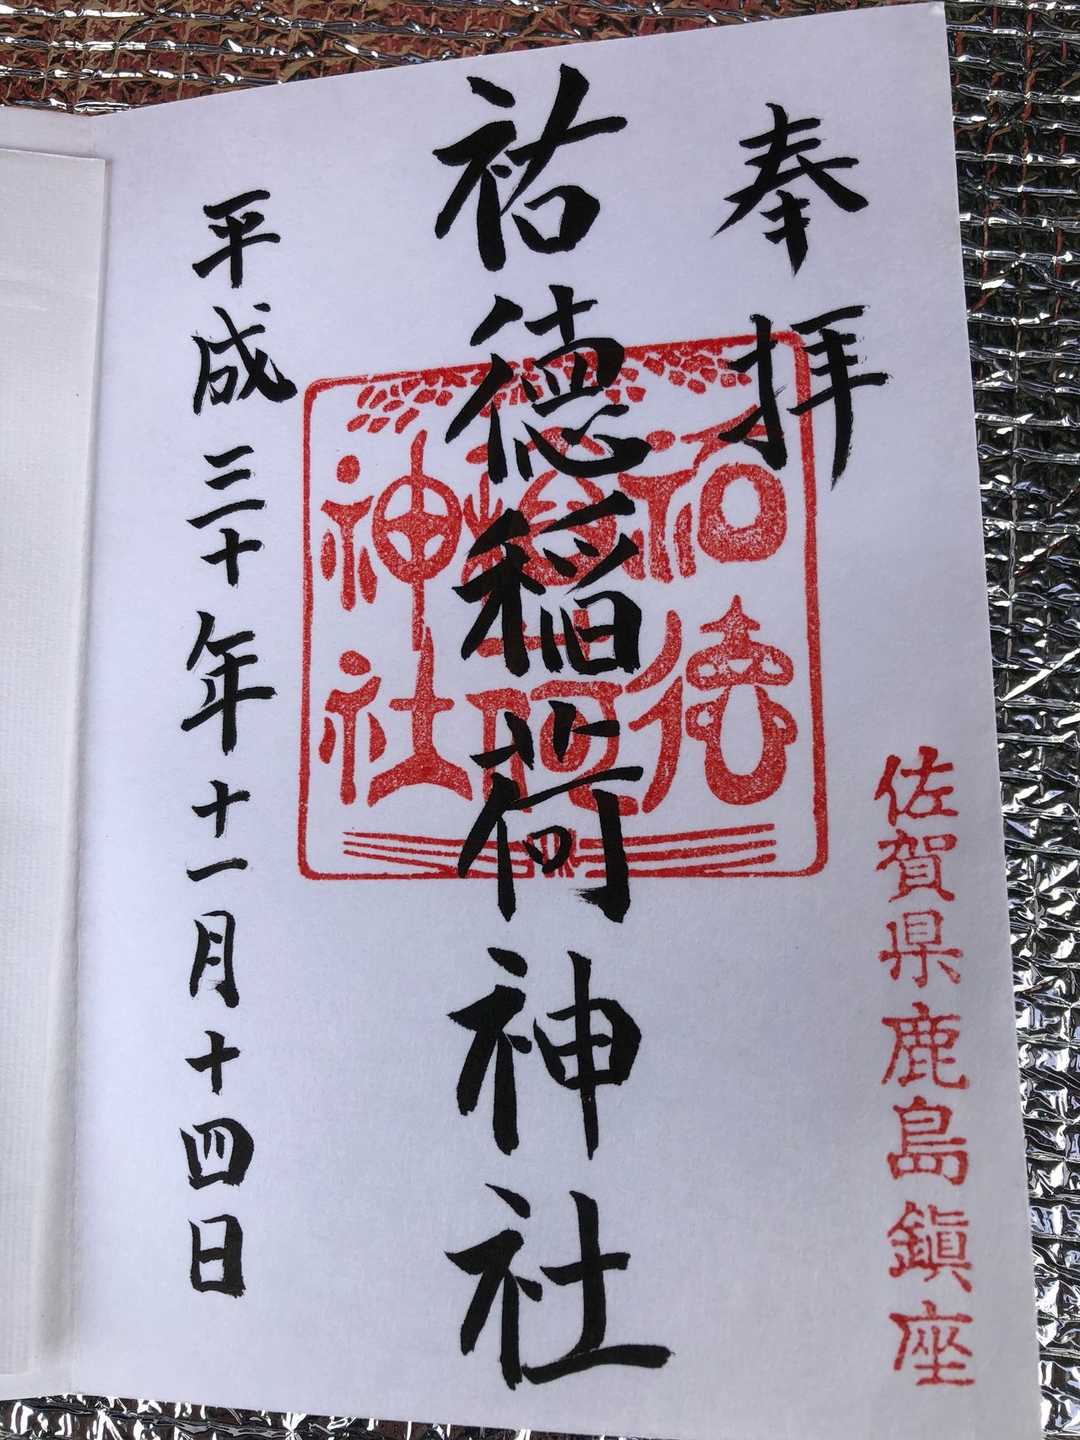 奉拝
佐賀県鹿島鎮座
祐徳稲荷神社
祐徳
稲荷
神社
平成三十年十一月十四日